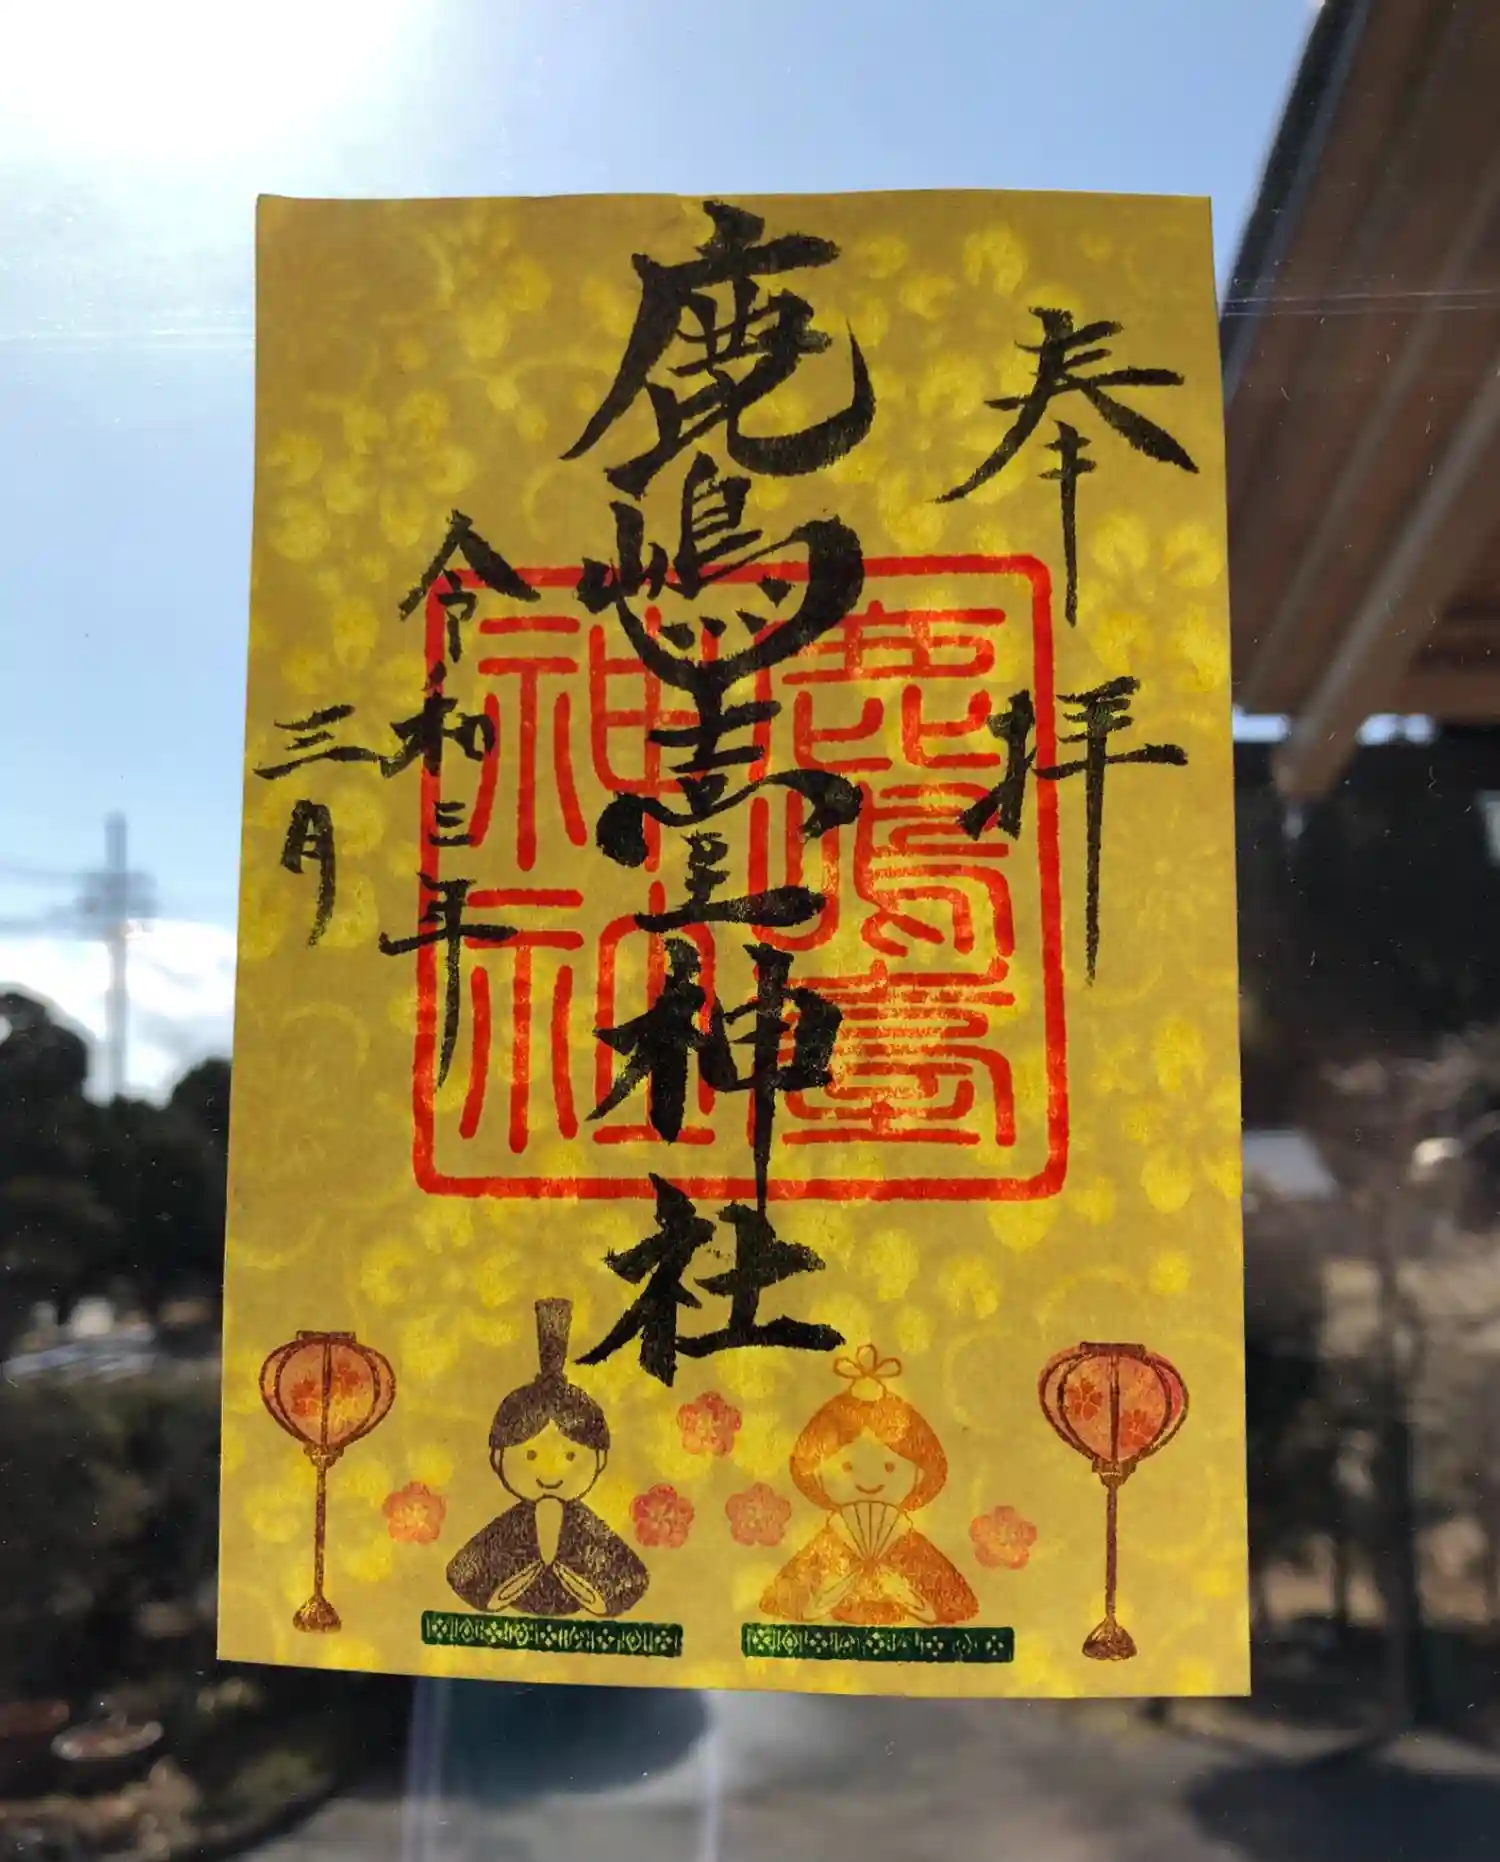 奉拝
鹿嶋臺神社
令和三年
三月
鹿嶋臺
神社